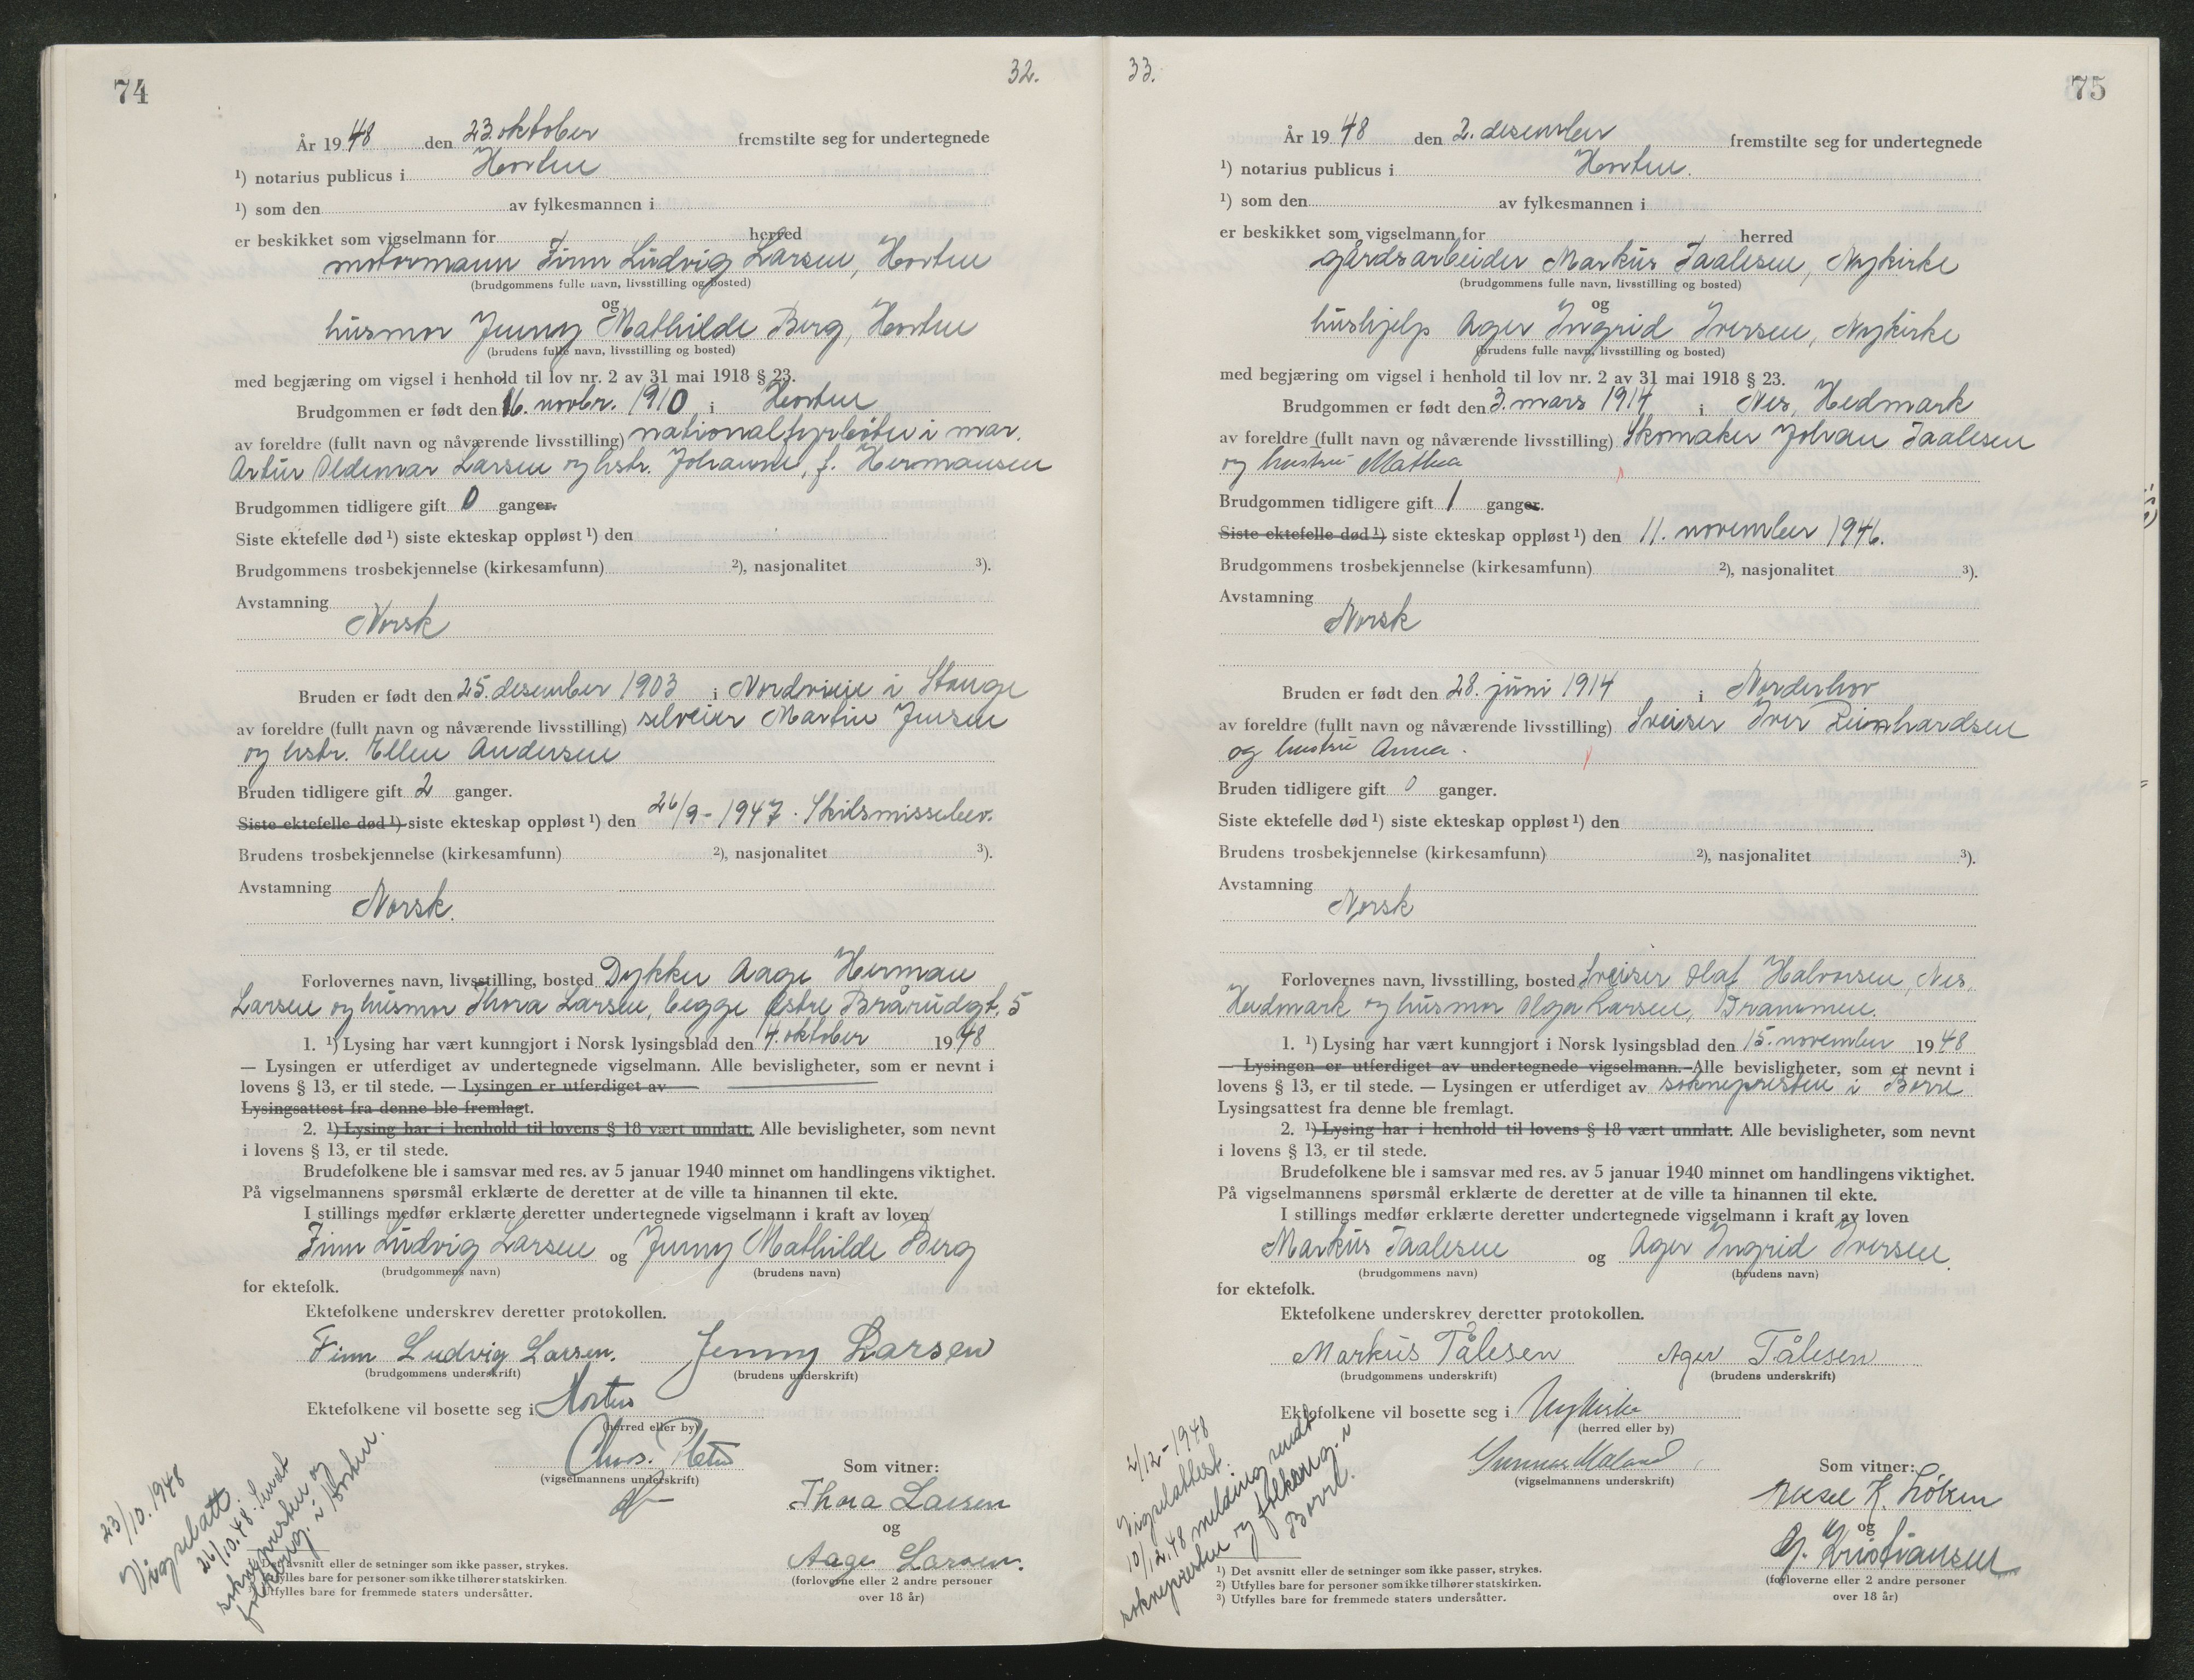 74
32.
År 1948 den 23. oktober fremstilte seg for undertegnede
¹) notarius publicus i Horten
¹) som den av fylkesmannen i
er beskikket som vigselmann for herred
motormann Finn Ludvig Larsen, Horten
(brudgommens fulle navn, livsstilling og bosted)
og
husmor Jenny Mathilde Berg, Horten
(brudens fulle navn, livsstilling og bosted)
med begjæring om vigsel i henhold til lov nr. 2 av 31 mai 1918 § 23.
Brudgommen er født den 16. novbr. 1910 i Horten
av foreldre (fullt navn og nåværende livsstilling) nationalfyrbøter i mar.
Artur Oldemar Larsen og hstr. Johanne, f. Hermansen
Brudgommen tidligere gift 0 ganger.
Siste ektefelle død ¹) siste ekteskap oppløst ¹) den
Brudgommens trosbekjennelse (kirkesamfunn) ²), nasjonalitet ³).
Avstamning
Norsk
Bruden er født den 25. desember 1903 i Nordviie i Stange
av foreldre (fullt navn og nåværende livsstilling) selveier Martin Jensen
og hstr. Ellen Andersen
Bruden tidligere gift 2 ganger.
Siste ektefelle død ¹) siste ekteskap oppløst ¹) den 26/9 - 1947. Skilsmissebev.
Brudens trosbekjennelse (kirkesamfunn) ²), nasjonalitet ³).
Avstamning
Norsk.
Forlovernes navn, livsstilling, bosted Dykker Aage Herman
Larsen og husmor Thora Larsen, begge Østre Brårudgt. 5
1. ¹) Lysing har vært kunngjort i Norsk lysingsblad den 4. oktober 1948
— Lysingen er utferdiget av undertegnede vigselmann. Alle bevisligheter, som er nevnt i
lovens § 13, er til stede. — Lysingen er utferdiget av
Lysingsattest fra denne ble fremlagt.
2. ¹) Lysing har i henhold til lovens § 18 vært unnlatt. Alle bevisligheter, som nevnt
i lovens § 13, er til stede.
Brudefolkene ble i samsvar med res. av 5 januar 1940 minnet om handlingens viktighet.
På vigselmannens spørsmål erklærte de deretter at de ville ta hinannen til ekte.
I stillings medfør erklærte deretter undertegnede vigselmann i kraft av loven
Finn Ludvig Larsen og Jenny Mathilde Berg
(brudgommens navn) (brudens navn)
for ektefolk.
Ektefolkene underskrev deretter protokollen.
Finn Ludvig Larsen. Jenny Larsen
(brudgommens underskrift) (brudens underskrift)
Ektefolkene vil bosette seg i Horten
(herred eller by)
(vigselmannens underskrift)
Som vitner:
Thora Larsen
og
Aage Larsen.
(forloverne eller 2 andre personer
over 18 år)
23/10. 1948
Vigselatt
26/10.48. Sendt
soknepresten og
folkereg. i Horten.
¹) Det avsnitt eller de setninger som ikke passer, strykes.
Utfylles bare for personer som ikke tilhører statskirken.
Utfylles bare for fremmede staters undersåtter.
33.
75
År 1948 den 2. desember fremstilte seg for undertegnede
¹) notarius publicus i Horten.
¹) som den av fylkesmannen i
er beskikket som vigselmann for herred
gårdsarbeider Markus Taalesen, Nykirke
(brudgommens fulle navn, livsstilling og bosted)
og
hushjelp Ager Ingrid Iversen, Nykirke
(brudens fulle navn, livsstilling og bosted)
med begjæring om vigsel i henhold til lov nr. 2 av 31 mai 1918 § 23.
Brudgommen er født den 3. mars 1914 i Nes, Hedmark
av foreldre (fullt navn og nåværende livsstilling) Skomaker Johan Taalesen
og hustru Mathea
Brudgommen tidligere gift 1 ganger.
Siste ektefelle død ¹) siste ekteskap oppløst ¹) den 11. november 1946.
Brudgommens trosbekjennelse (kirkesamfunn) ²), nasjonalitet ³).
Avstamning
Norsk
Bruden er født den 28. juni 1914 i Norderhov
av foreldre (fullt navn og nåværende livsstilling) Sveiser Iver Reinhardsen
og hustru Anna.
Bruden tidligere gift 0 ganger.
Siste ektefelle død ¹) siste ekteskap oppløst ¹) den
Brudens trosbekjennelse (kirkesamfunn) ²), nasjonalitet ³).
Avstamning
Norsk
Forlovernes navn, livsstilling, bosted Sveiser Olaf Halvorsen, Nes,
Hedmark og husmor Olga Larsen, Drammen.
1. ¹) Lysing har vært kunngjort i Norsk lysingsblad den 15. november 1948
— Lysingen er utferdiget av undertegnede vigselmann. — Alle bevisligheter, som er nevnt i
lovens § 13, er til stede. — Lysingen er utferdiget av soknepresten i Borre
Lysingsattest fra denne ble fremlagt.
2. ¹) Lysing har i henhold til lovens § 18 vært unnlatt. Alle bevisligheter, som nevnt
i lovens § 13, er til stede.
Brudefolkene ble i samsvar med res. av 5 januar 1940 minnet om handlingens viktighet.
På vigselmannens spørsmål erklærte de deretter at de ville ta hinannen til ekte.
I stillings medfør erklærte deretter undertegnede vigselmann i kraft av loven
Markus Taalesen og Ager Ingrid Iversen.
(brudgommens navn) (brudens navn)
for ektefolk.
Ektefolkene underskrev deretter protokollen.
Markus Tålesen Ager Tålesen
(brudgommens underskrift) (brudens underskrift)
Ektefolkene vil bosette seg i Nykirke
(herred eller by)
Gunnar Maland
(vigselmannens underskrift)
Som vitner:
K.
og
G. Kristiansen
(forloverne eller 2 andre personer
over 18 år)
2/12 - 1948
Vigselattest.
10/12.48 melding sendt
soknepresten og folkereg. i
Borre.
¹) Det avsnitt eller de setninger som ikke passer, strykes.
²) Utfylles bare for personer som ikke tilhører statskirken.
³) Utfylles bare for fremmede staters undersåtter.